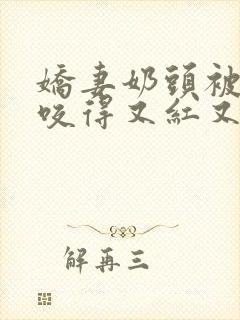 嬌妻奶頭被
咬得又紅又
解再三